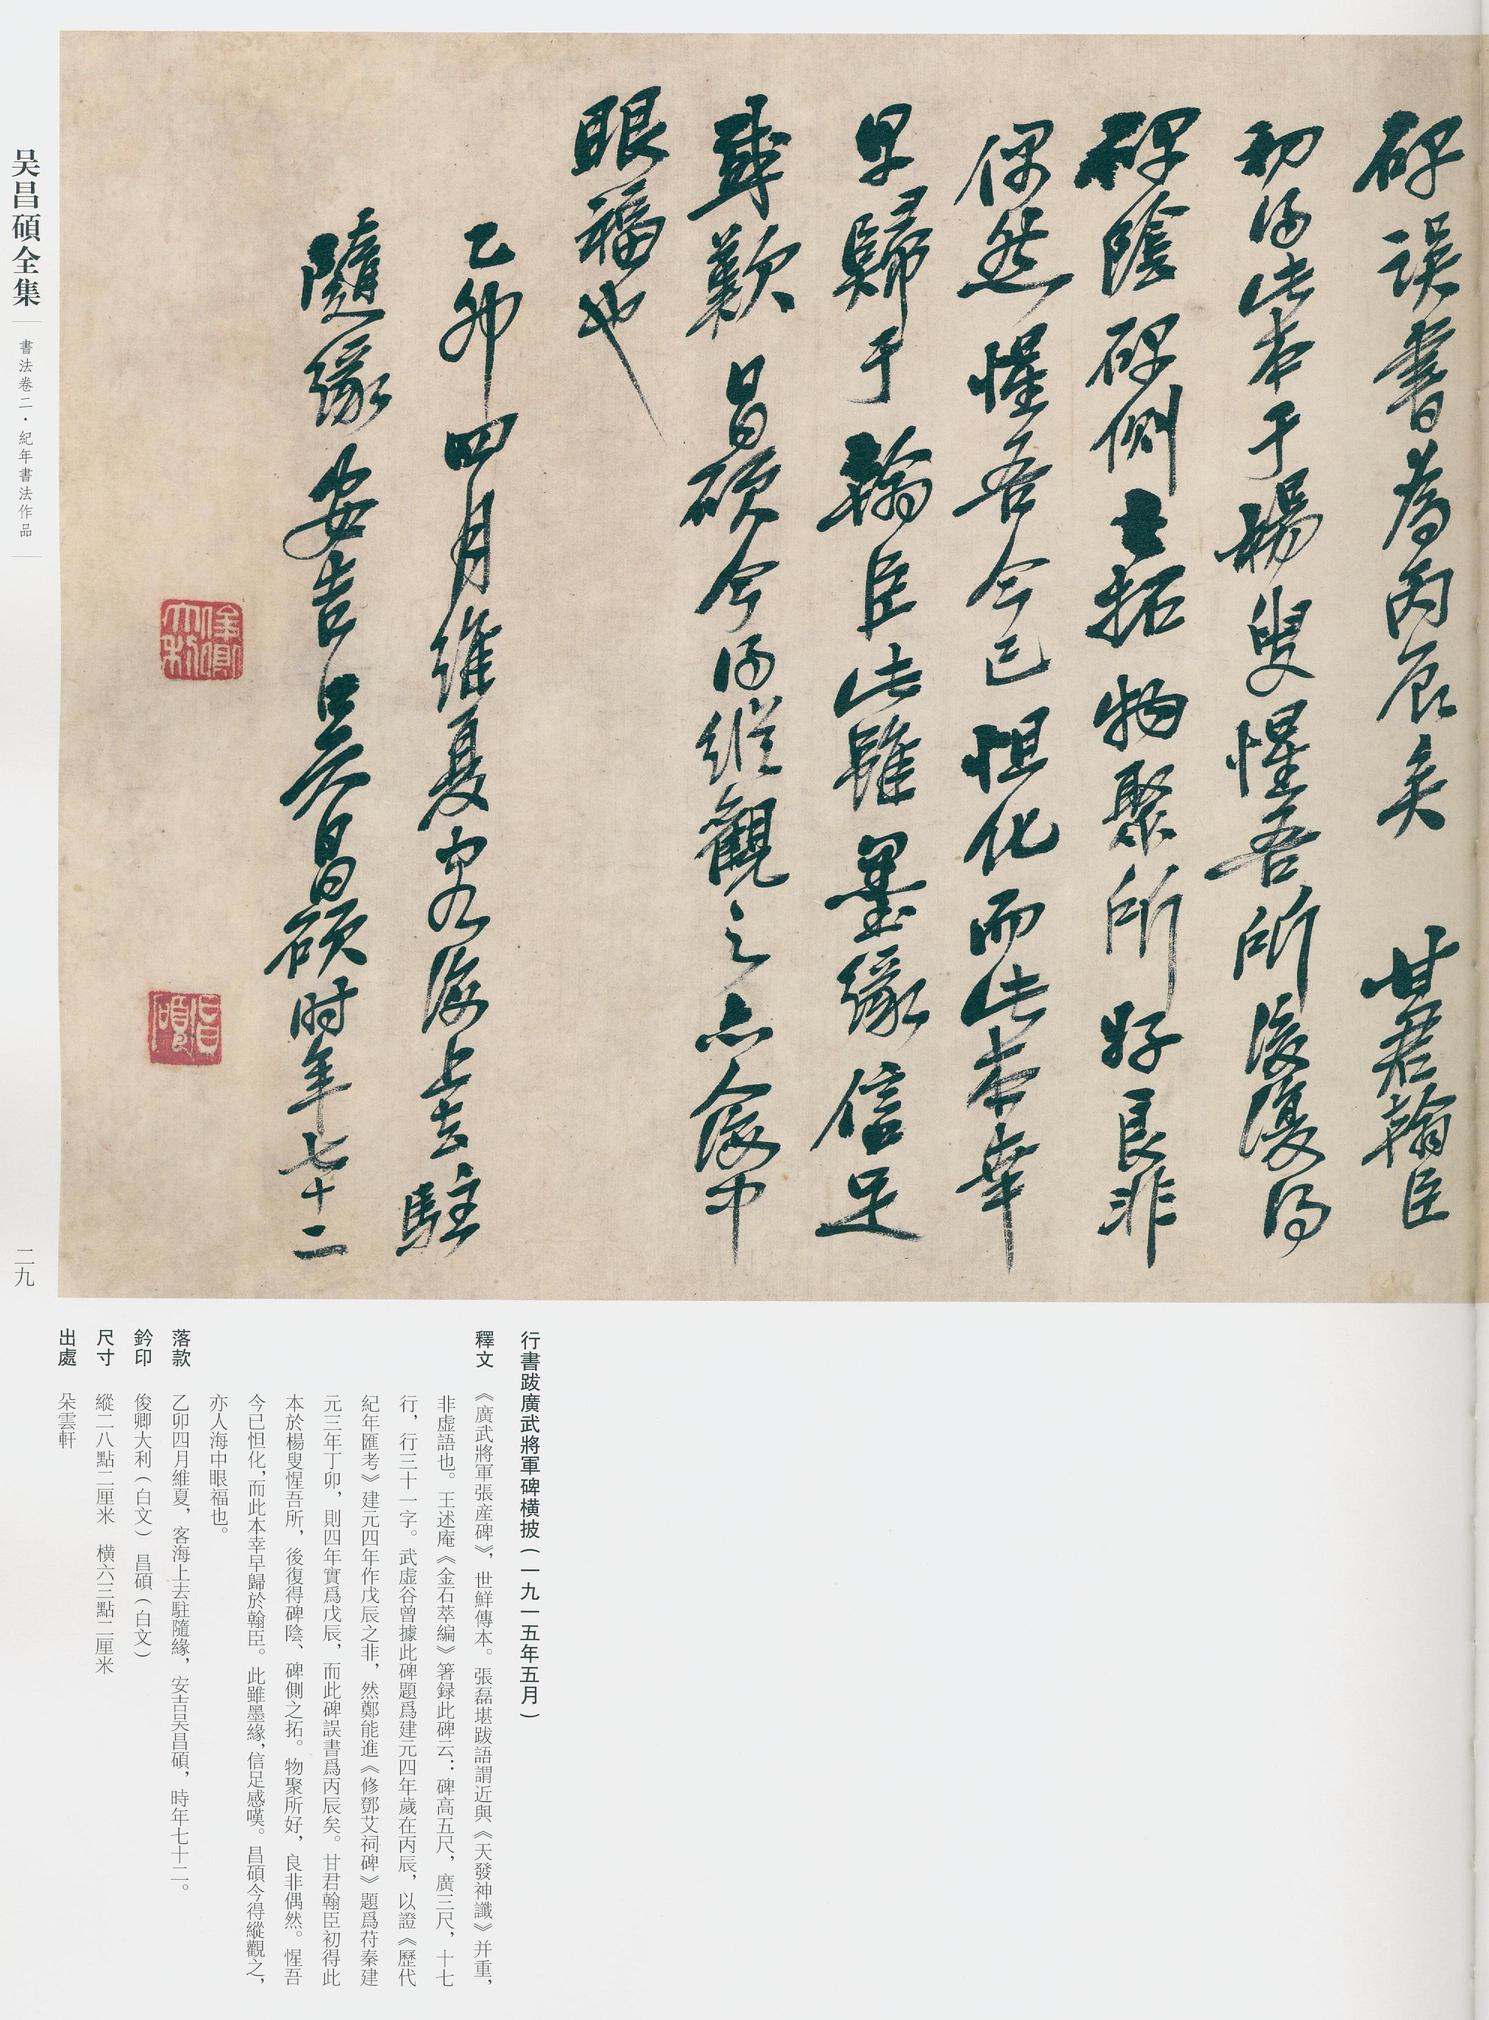 碑誤書為丙辰矣甘君翰臣
初得此本于楊叟惺吾所後復得
碑陰碑側之拓物聚所好良非
偶然惺吾今已怛化而此本幸
早歸于翰臣此雖墨緣信足
感歎昌碩今得縱觀之亦人海中
眼福也
乙卯四月維夏客海上去駐
隨緣安吉吳昌碩時年七十二
俊卿大利
昌碩
吴昌碩全集
書法卷二·紀年書法作品
二九
行書跋廣武將軍碑橫披(一九一五年五月)
釋文 《廣武將軍張産碑》,世鮮傳本。張磊堪跋語謂近與《天發神讖》并重,
非虛語也。王述庵《金石萃編》箸録此碑云:碑高五尺,廣三尺,十七
行,行三十一字。武虛谷曾據此碑題爲建元四年歲在丙辰,以證《歷代
紀年匯考》建元四年作戊辰之非,然鄭能進《修鄧艾祠碑》題爲苻秦建
元三年丁卯,則四年實爲戊辰,而此碑誤書爲丙辰矣。甘君翰臣初得此
本於楊叟惺吾所,後復得碑陰、碑側之拓。物聚所好,良非偶然。惺吾
今已怛化,而此本幸早歸於翰臣。此雖墨緣,信足感嘆。昌碩今得縱觀之,
亦人海中眼福也。
落款 乙卯四月維夏,客海上去駐隨緣,安吉吴昌碩,時年七十二。
鈐印 俊卿大利(白文) 昌碩(白文)
尺寸 縱二八點二厘米 橫六三點二厘米
出處 朵雲軒